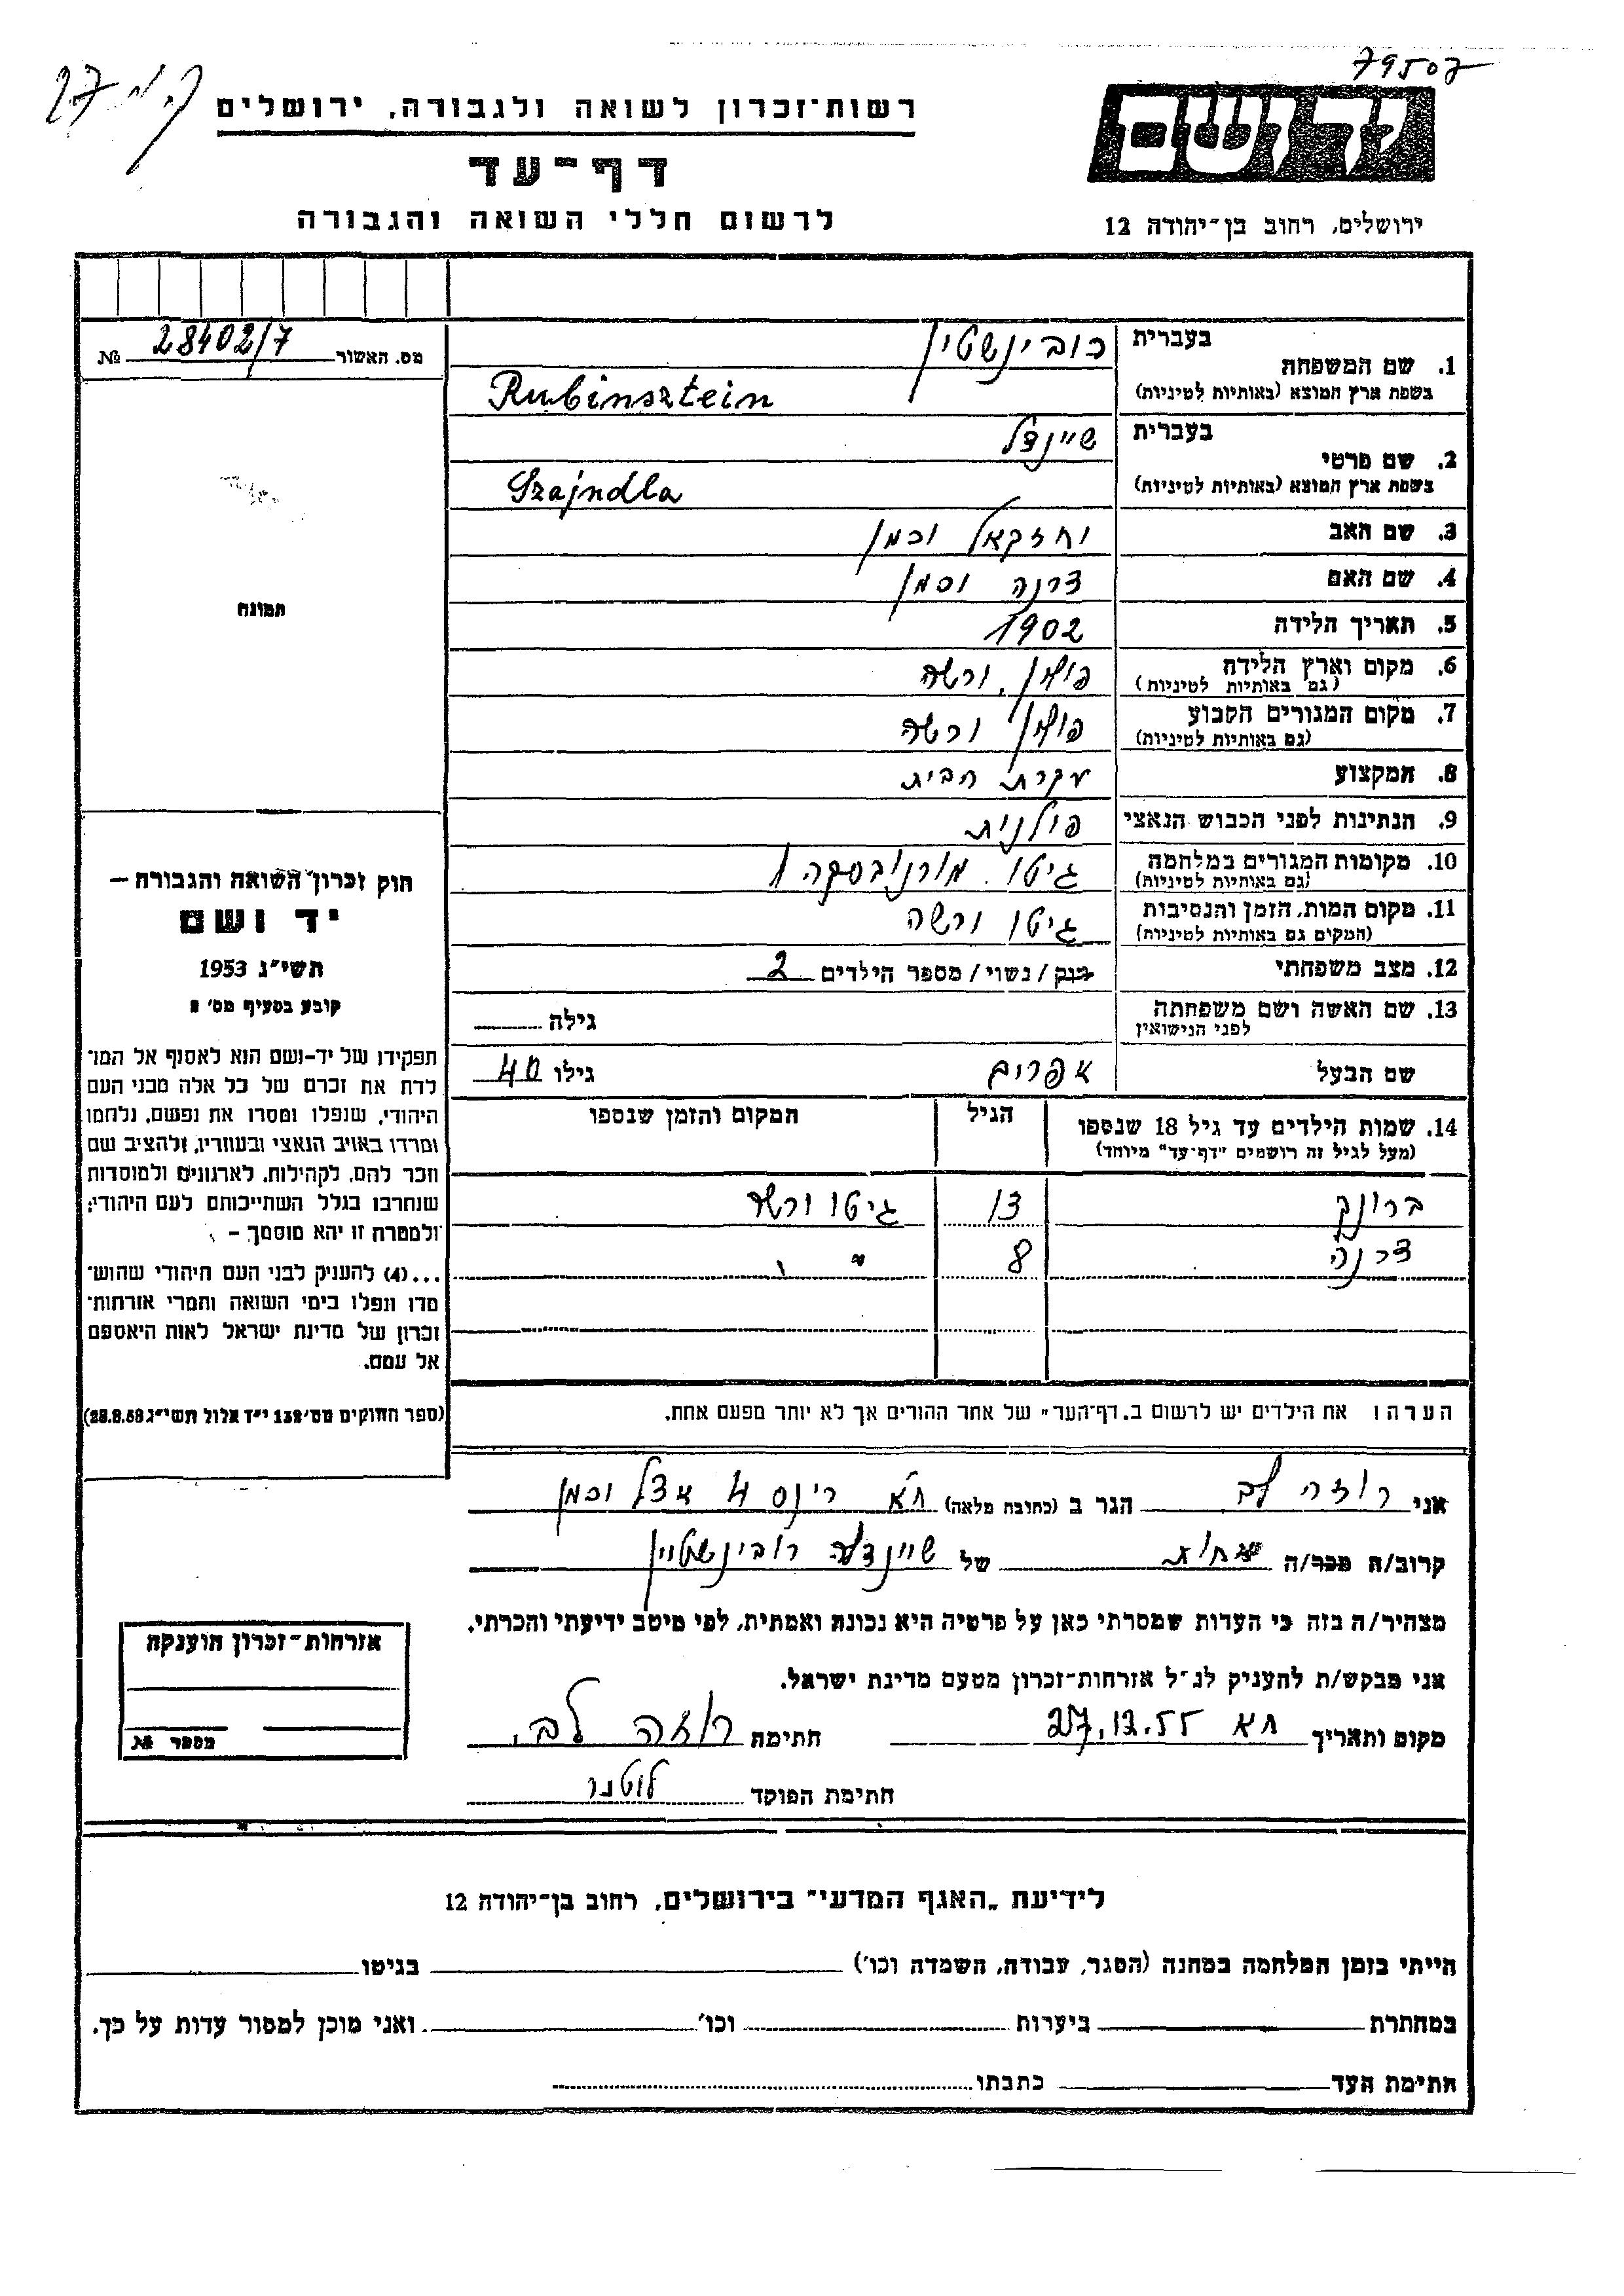 79507
ק.מ 27
ידושם
רשות־זכרון לשואה ולגבורה, ירושלים
דף־עד
לרשום חללי השואה והגבורה
ירושלים, רחוב בן־יהודה 12
מס. האשור 28402/7 №
תמונה
1. שם המשפחה
בעברית רובינשטיין
בשפת ארץ המוצא (באותיות לטיניות) Rubinsztein
2. שם פרטי
בעברית שיינדל
בשפת ארץ המוצא (באותיות לטיניות) Szajndla
3. שם האב יחזקאל וכמן
4. שם האם דרנה וכמן
5. תאריך הלידה 1902
6. מקום וארץ הלידה פולין, ורשה
(גם באותיות לטיניות)
7. מקום המגורים הקבוע פולין ורשה
(גם באותיות לטיניות)
8. המקצוע עקרת הבית
9. הנתינות לפני הכבוש הנאצי פולנית
10. מקומות המגורים במלחמה גיטו.
(גם באותיות לטיניות)
11. מקום המות, הזמן והנסיבות גיטו ורשה
(המקום גם באותיות לטיניות)
12. מצב משפחתי רווק/נשוי/מספר הילדים 2
13. שם האשה ושם משפחתה
לפני הנישואין
גילה
שם הבעל אפרים גילו 40
14. שמות הילדים עד גיל 18 שנספו הגיל המקום והזמן שנספו
(מעל לגיל זה רושמים "דף־עד" מיוחד)
ברונק 13 גיטו ורשה
דרנה 8 " "
הערה: את הילדים יש לרשום ב„דף־העד" של אחד ההורים אך לא יותר מפעם אחת.
חוק זכרון השואה והגבורה –
יד ושם
תשי"ג 1953
קובע בסעיף מס' 2
תפקידו של יד־ושם הוא לאסוף אל המו־
לדת את זכרם של כל אלה מבני העם
היהודי, שנפלו ומסרו את נפשם, נלחמו
ומרדו באויב הנאצי ובעוזריו, ולהציב שם
וזכר להם, לקהילות, לארגונים ולמוסדות
שנחרבו בגלל השתייכותם לעם היהודי;
ולמטרה זו יהא מוסמך –
...(4) להעניק לבני העם היהודי שהוש־
מדו ונפלו בימי השואה והמרי אזרחות־
זכרון של מדינת ישראל לאות היאספם
אל עמם.
(ספר החוקים מס' 132 י"ז אלול תשי"ג 28.8.53)
אני רוזה לב הגר ב (כתובת מלאה) ת"א ריינס 4 אצל וכמן
קרוב/ה מכר/ה אחות של שיינדלה רובינשטיין
מצהיר/ה בזה כי העדות שמסרתי כאן על פרטיה היא נכונה ואמתית, לפי מיטב ידיעתי והכרתי.
אני מבקש/ת להעניק לנ"ל אזרחות־זכרון מטעם מדינת ישראל.
מקום ותאריך ת"א 27.12.55 חתימה רוזה לב.
חתימת הפוקד
אזרחות־זכרון הוענקה
מספר №
לידיעת „האגף המדעי" בירושלים, רחוב בן־יהודה 12
הייתי בזמן המלחמה במחנה (הסגר, עבודה, השמדה וכו') בגיטו
במחתרת ביערות וכו' ואני מוכן למסור עדות על כך.
חתימת העד כתבתו